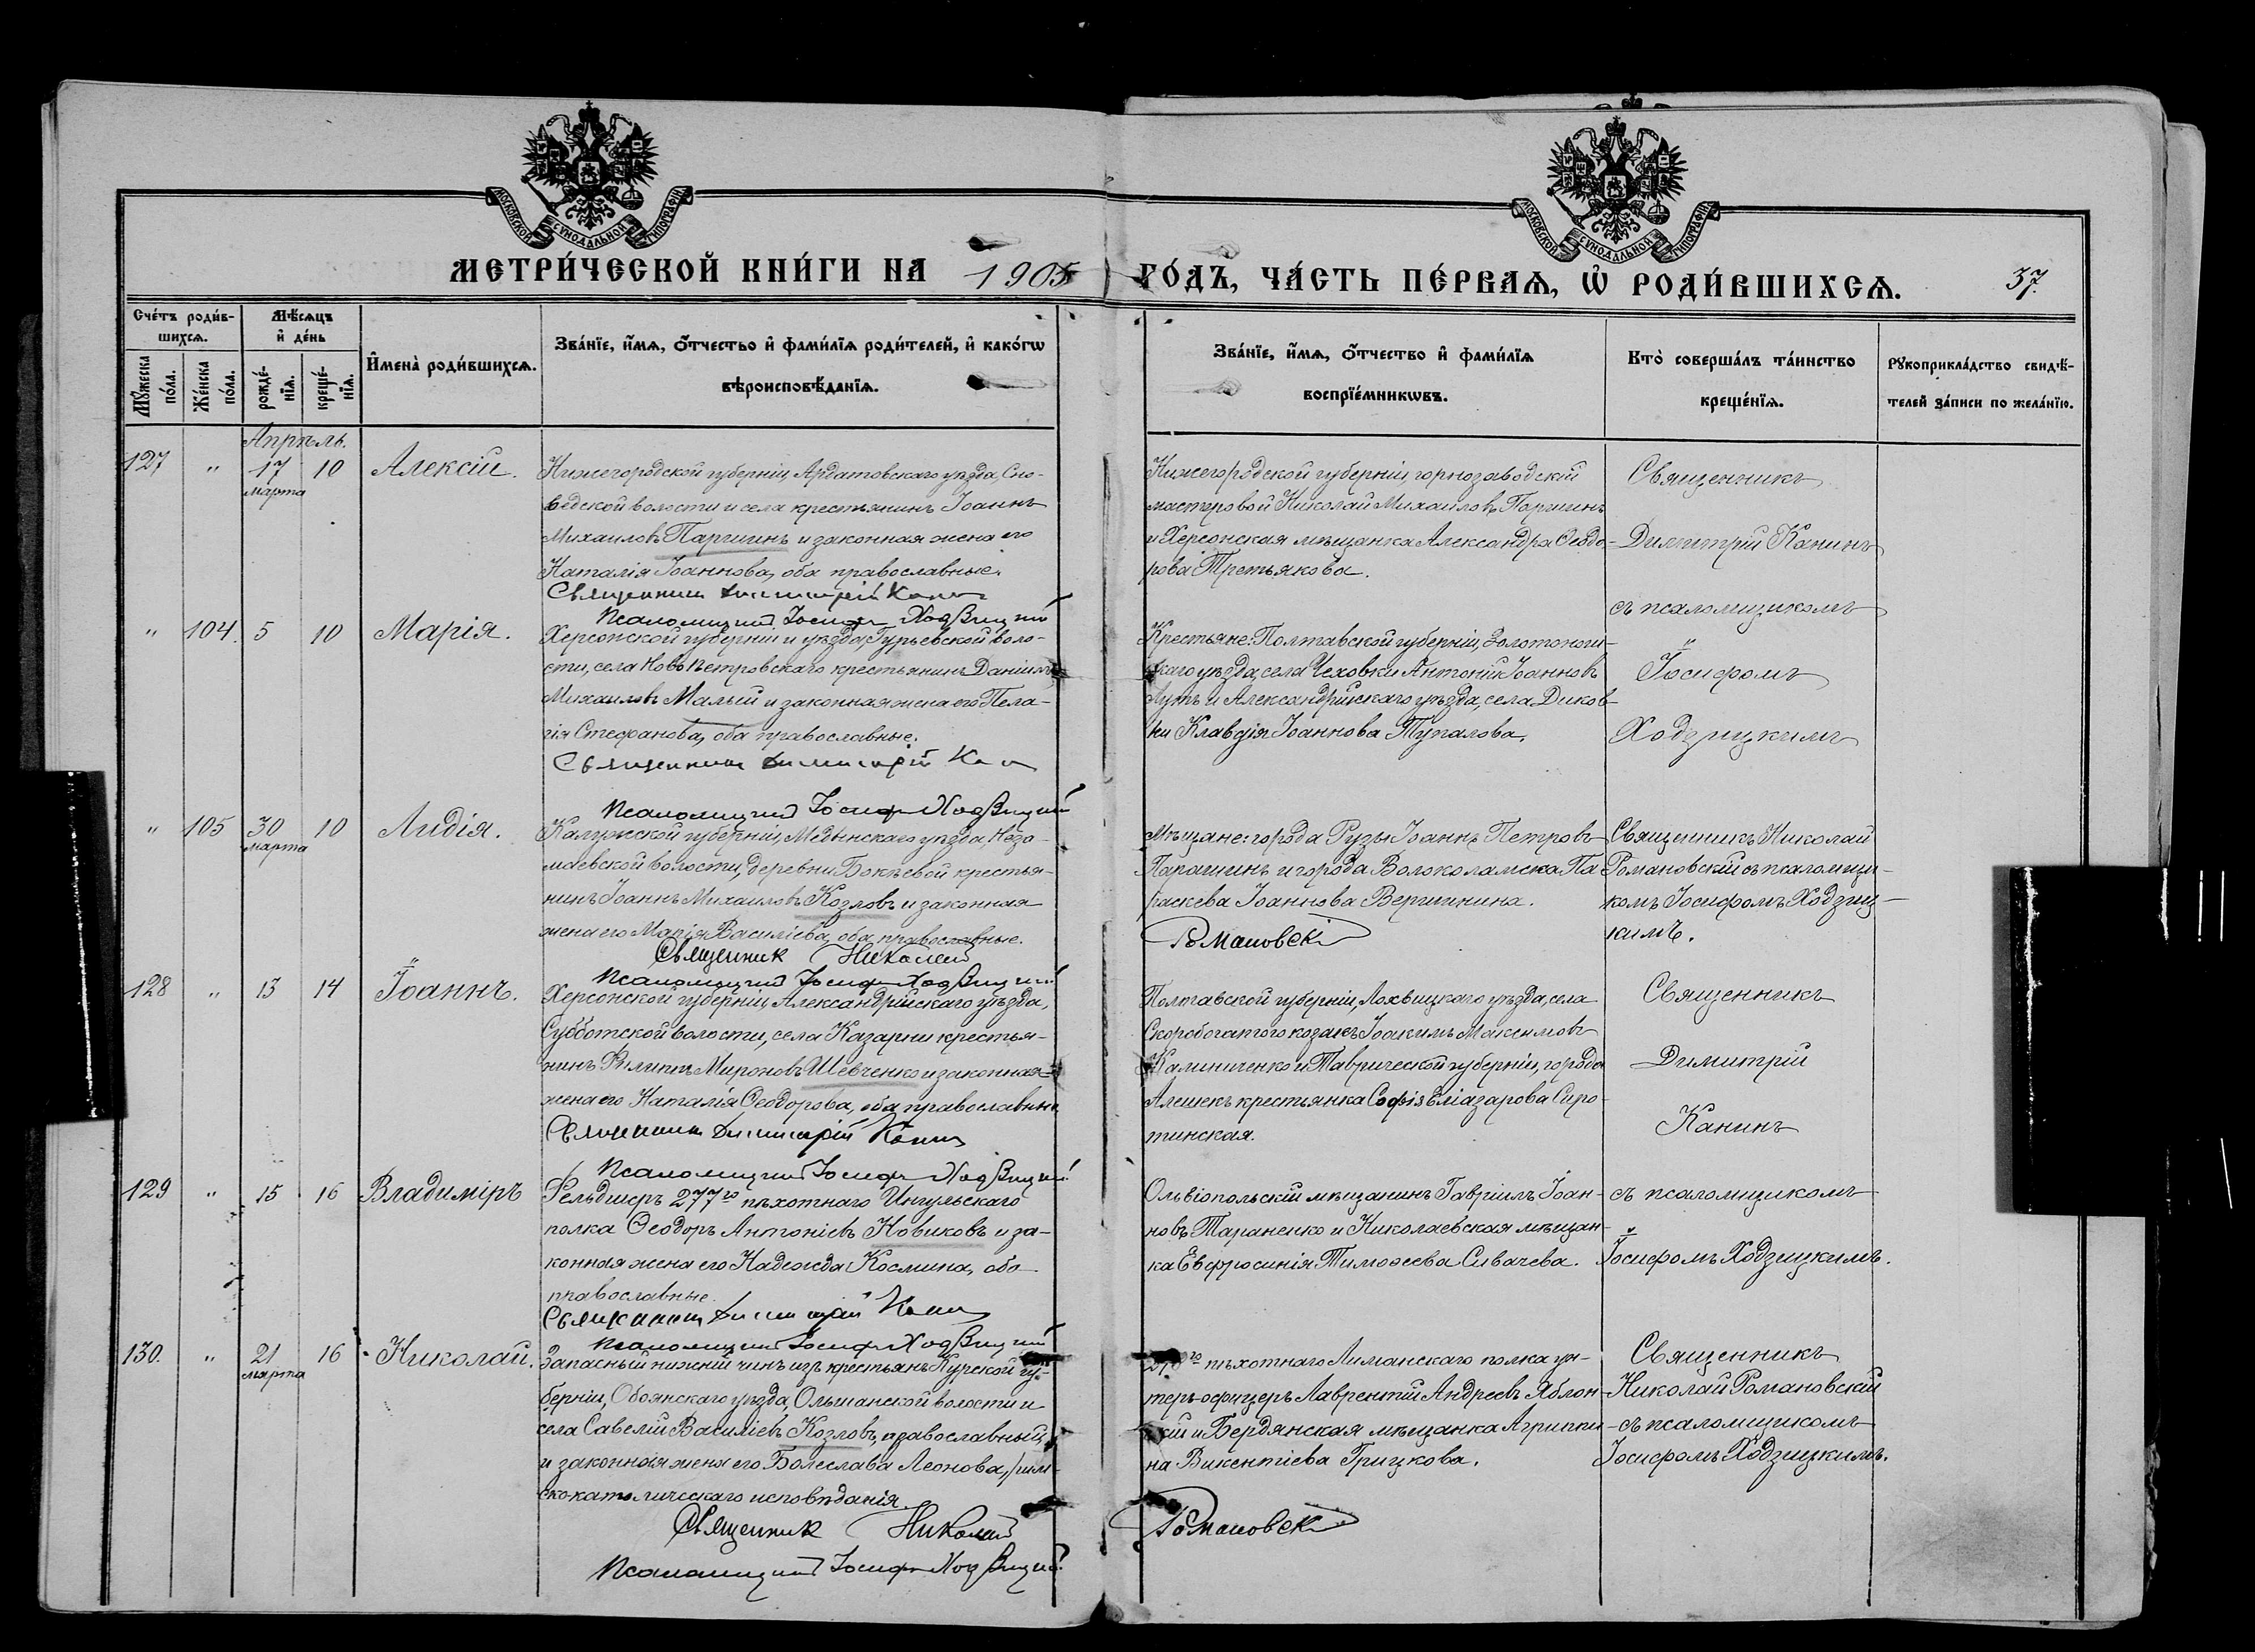 МОСКОВСКОЙ СѴНОДАЛЬНОЙ ТИПОГРАФІИ
МОСКОВСКОЙ СѴНОДАЛЬНОЙ ТИПОГРАФІИ
МЕТРИ́ЧЕСКОЙ КНИ́ГИ НА 1905 ГО́ДЪ, ЧА́СТЬ ПЕ́РВАѦ, Ѡ҆ РОДИ́ВШИХСѦ.
37.
Сче́тъ роди́в-
шихсѧ.
Мѣ́сѧцъ
и҆ де́нь
И҆мена̀ роди́вшихсѧ.
Зва́нїе, и҆́мѧ, ѻ҆́тчество и҆ фами́лїѧ роди́телей, и҆ како́гѡ
вѣроисповѣ́данїѧ.
Зва́нїе, и҆́мѧ, ѻ҆́тчество и҆ фами́лїѧ
воспрїе́мникѡвъ.
Кто̀ соверша́лъ та́инство
креще́нїѧ.
Рꙋкоприкла́дство свидѣ́-
телей за́писи по жела́нїю.
Мꙋ́жеска
по́ла.
Же́нска
по́ла.
рожде́-
нїѧ.
креще́-
нїѧ.
Апрѣль.
127 " 17 10 Алексій.
марта
Нижегородской губерніи, Ардатовскаго уѣзда, Сно-
ведской волости и села крестьянинъ Іоаннъ
Михаиловъ Паршинъ и законная жена его
Наталія Іоаннова, оба православные.
Священникъ Димитрій Канинъ
Псаломщикъ Іосифъ Ходзицкій
Нижегородской губерніи, горнозаводскій
мастеровой Николай Михаиловъ Паршинъ
и Херсонская мѣщанка Александра Ѳеодо-
рова Третьякова.
Священникъ
Димитрій Канинъ
съ псаломщикомъ
" 104. 5 10 Марія.
Херсонской губерніи и уѣзда, Гурьевской воло-
сти, села Новопетровскаго крестьянинъ Даніилъ
Михаиловъ Малый и законная жена его Пела-
гія Стефанова, оба православные.
Священникъ Димитрій Канинъ
Псаломщикъ Іосифъ Ходзицкій
Крестьяне: Полтавской губерніи, Золотонош-
скаго уѣзда, села Чеховки Антоній Іоанновъ
и Александрійскаго уѣзда, села Диков-
ки Клавдія Іоаннова Тупалова.
Іосифомъ
Ходзицкимъ
" 105 30 10 Лидія.
марта
Калужской губерніи, Медынскаго уѣзда, Неза-
маевской волости, деревни Бокѣевой крестья-
нинъ Іоаннъ Михаиловъ Козловъ и законная
жена его Марія Василіева, оба православные.
Священникъ Николай
Псаломщикъ Іосифъ Ходзицкій
Мѣщане: города Рузы Іоаннъ Петровъ
Парашинъ и города Волоколамска Па-
раскева Іоаннова Вершинина.
Романовскій
Священникъ Николай
Романовскій съ псаломщи-
комъ Іосифомъ Ходзиц-
кимъ.
128 " 13 14 Іоаннъ.
Херсонской губерніи, Александрійскаго уѣзда,
Субботской волости, села Казарни крестья-
нинъ Филиппъ Мироновъ Шевченко и законная
жена его Наталія Ѳеодорова, оба православные
Священникъ Димитрій Канинъ
Псаломщикъ Іосифъ Ходзицкій
Полтавской губерніи, Лохвицкаго уѣзда, села
Скоробогатого козакъ Іоакимъ Максимовъ
Калиниченко и Таврической губерніи, города
Алешекъ крестьянка Софія Еліазарова Сиро-
тинская.
Священникъ
Димитрій
Канинъ
129 " 15 16 Владиміръ
Фельдшеръ 277го пѣхотнаго Ингульскаго
полка Ѳеодоръ Антоніевъ Новиковъ и за-
конная жена его Надежда Космина, оба
православные.
Священникъ Димитрій Канинъ
Псаломщикъ Іосифъ Ходзицкій
Ольвіопольскій мѣщанинъ Гавріилъ Іоан-
новъ Тараненко и Николаевская мѣщан-
ка Евфросинія Тимоѳеева Сивачева.
съ псаломщикомъ
Іосифомъ Ходзицкимъ.
130. " 21 16 Николай.
марта
Запасный нижній чинъ изъ крестьянъ Курской гу-
берніи, Обоянскаго уѣзда, Ольшанской волости и
села Савелій Василіевъ Козловъ, православный,
и законная жена его Болеслава Леонова, рим-
скокатолическаго исповѣданія.
Священникъ Николай
Псаломщикъ Іосифъ Ходзицкій
го пѣхотнаго Лиманскаго полка ун-
теръ-офицеръ Лаврентій Андреевъ Яблон-
скій и Бердянская мѣщанка Агриппи-
на Викентіева Грицкова.
Романовскій
Священникъ
Николай Романовскій
съ псаломщикомъ
Іосифомъ Ходзицкимъ.